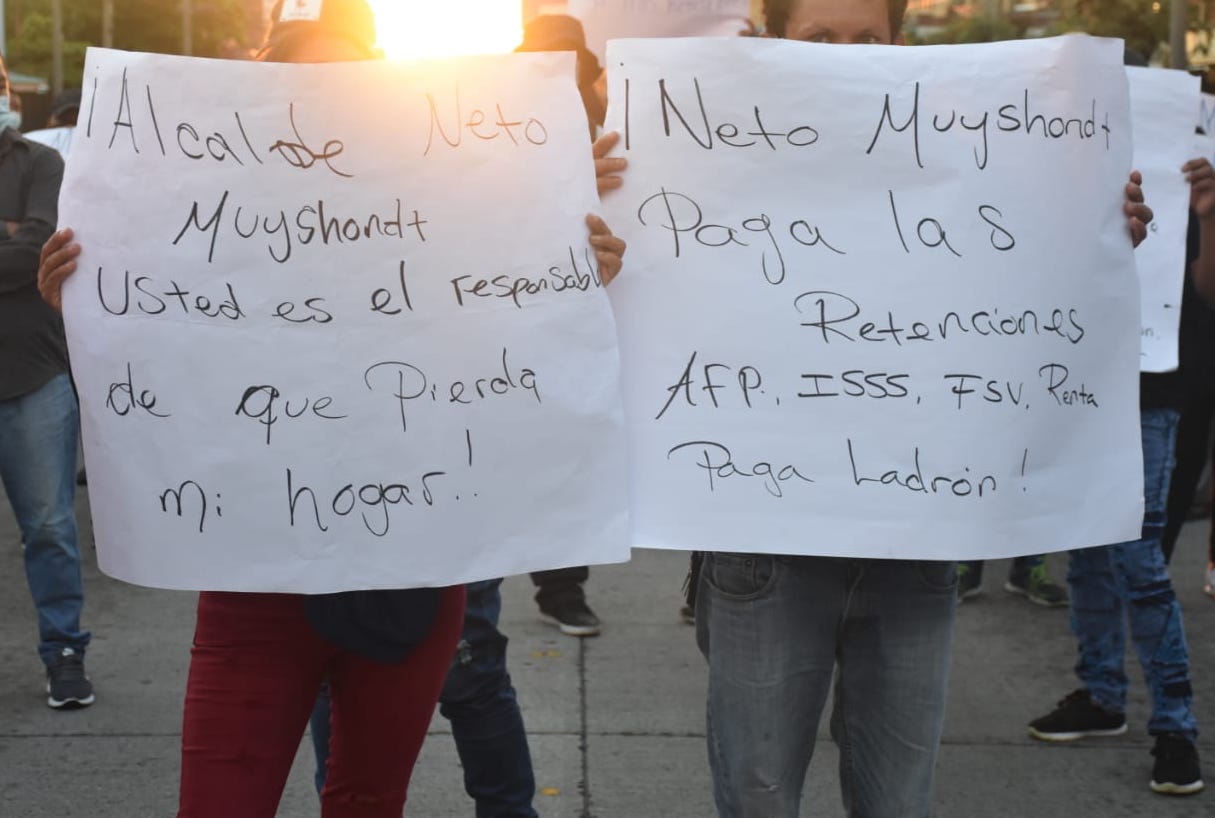 ¡Alcalde Neto
Muyshondt
Usted es el responsabl
de que Pierda
mi hogar..!
¡Neto Muyshondt
Paga las
Retenciones
AFP., ISSS, FSV, Renta
Paga Ladrón!